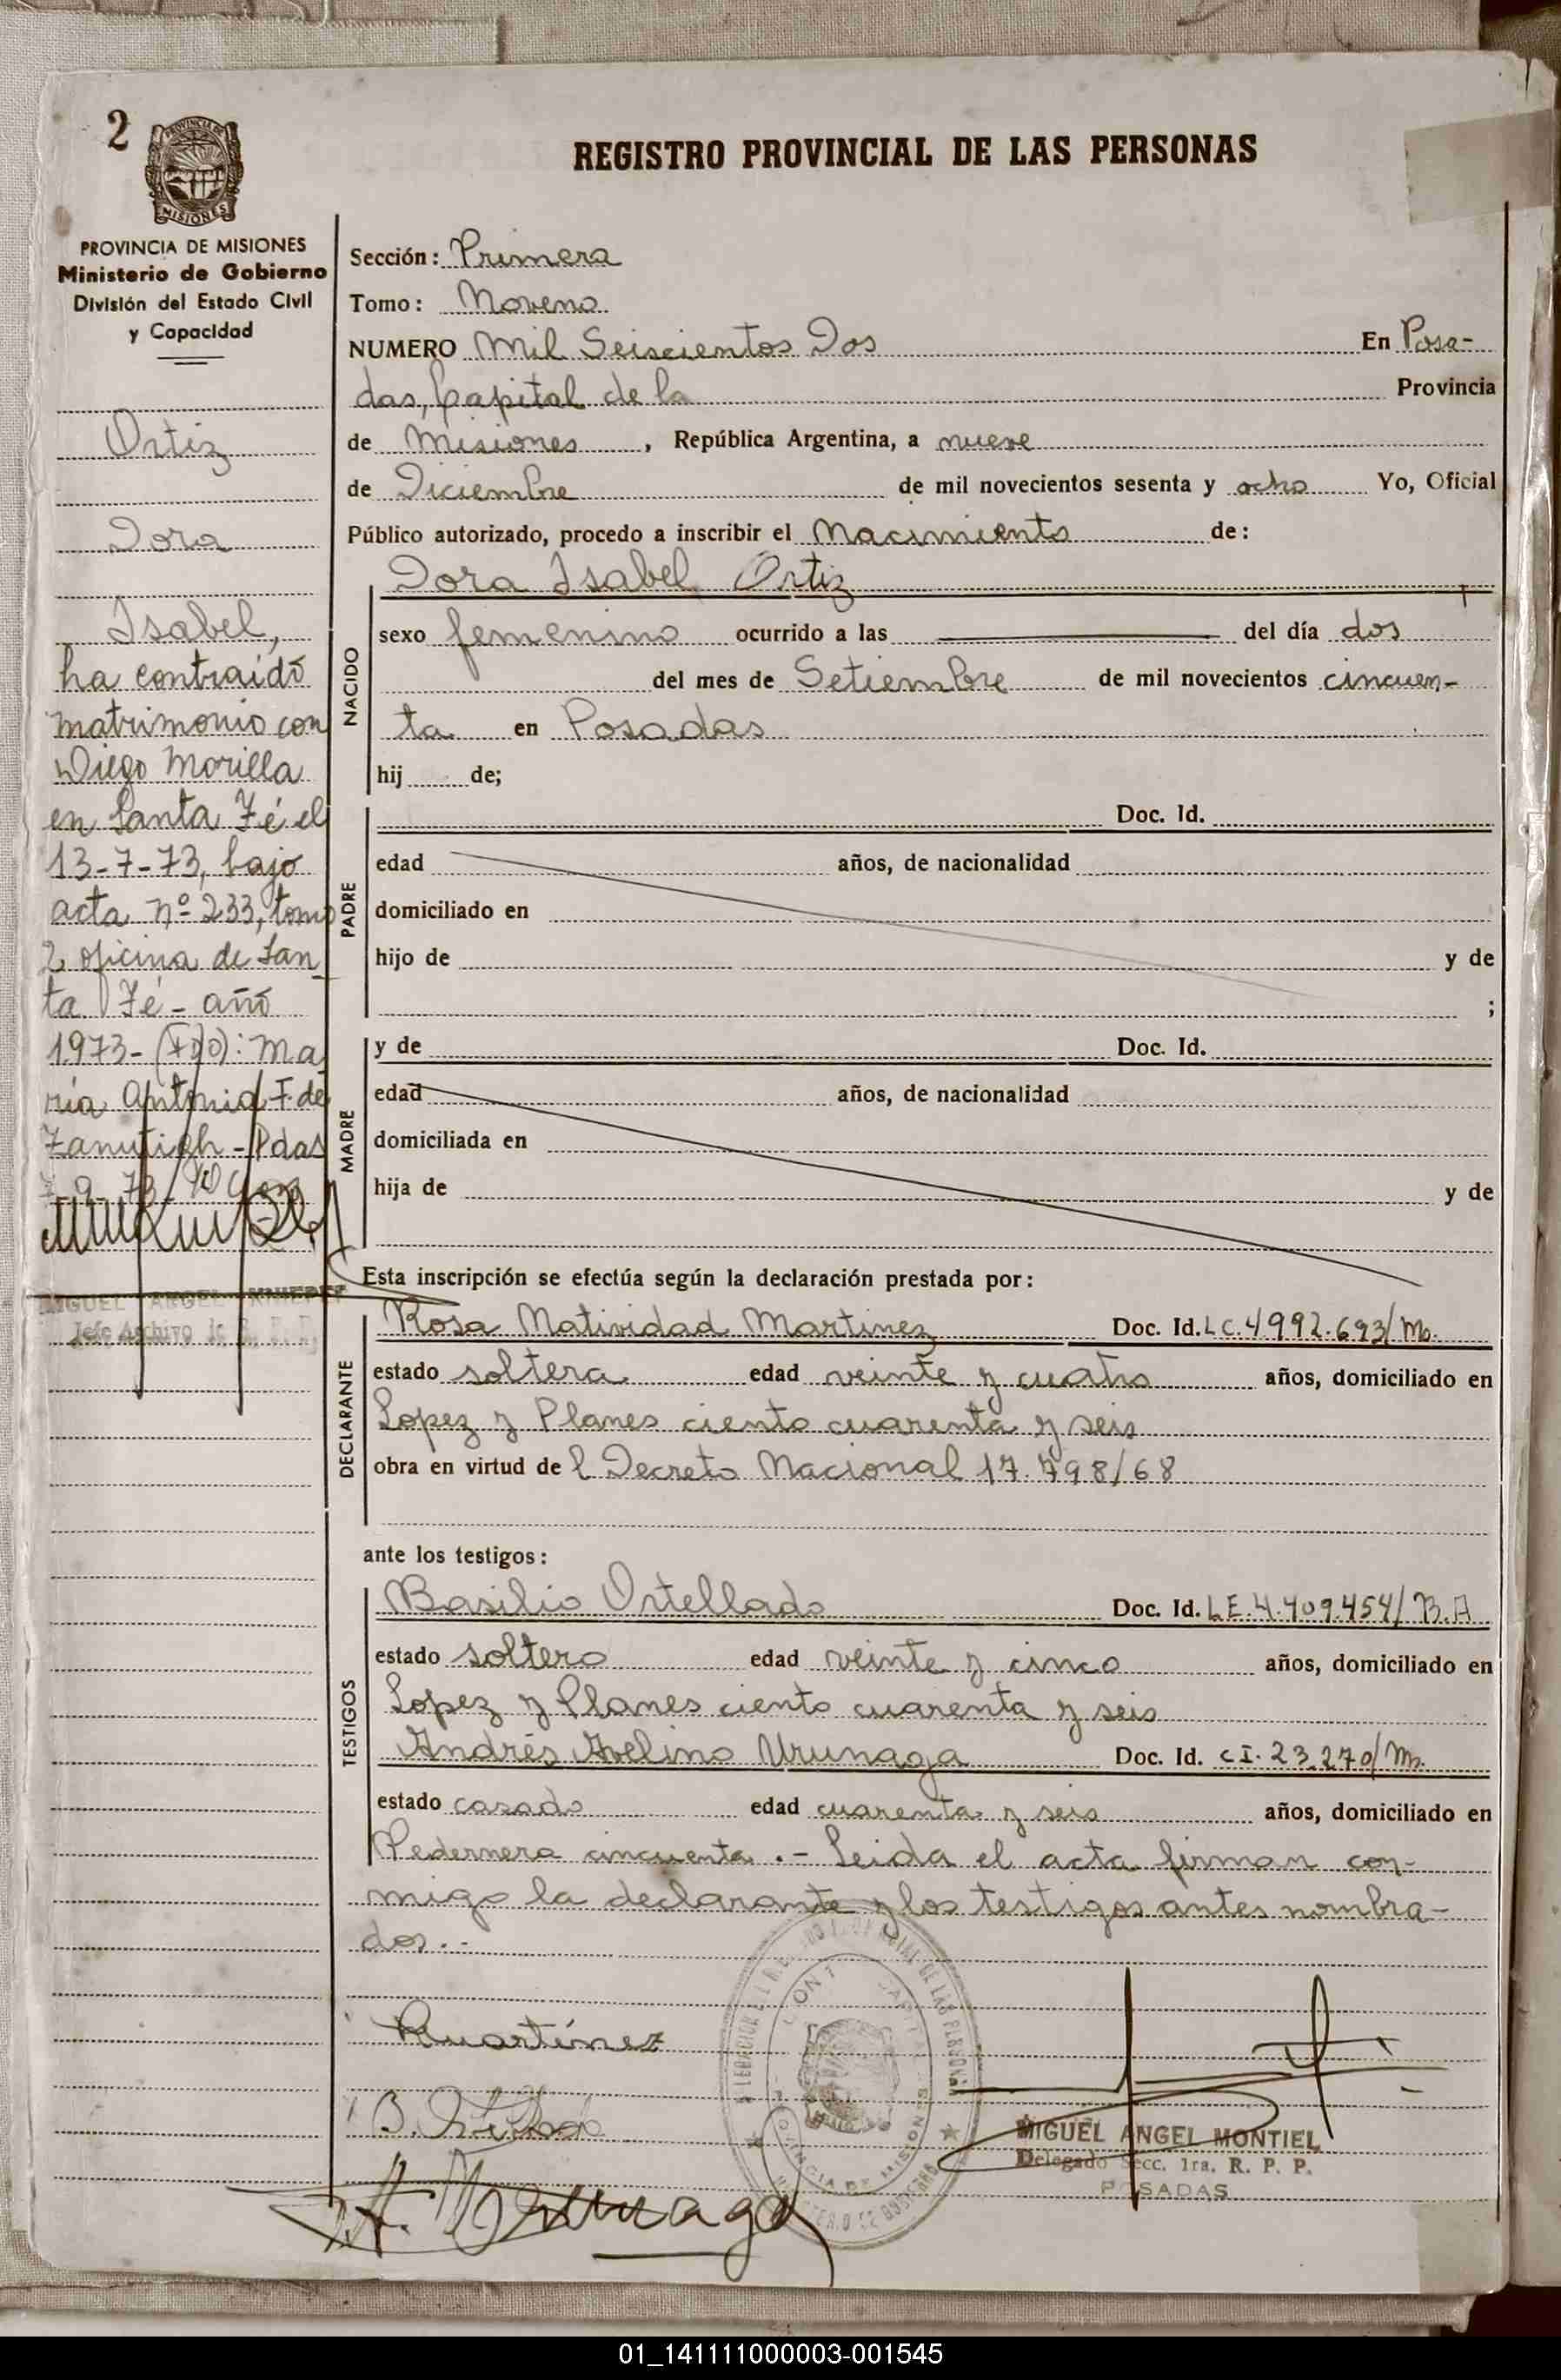 2
PROVINCIA DE MISIONES
PROVINCIA DE MISIONES
Ministerio de Gobierno
División del Estado Civil
y Capacidad
Ortiz
Dora
Isabel,
ha contraído
matrimonio con
Diego Morilla
en Santa Fé el
13-7-73, bajo
acta nº 233, tomo
2 oficina de San
ta Fé - año
1973- (FDO): Ma
ría Antonia F. de
Zanutigh - Pdas
7-9-73
MIGUEL ANGEL
Jefe Archivo
REGISTRO PROVINCIAL DE LAS PERSONAS
Sección: Primera
Tomo: Noveno
NUMERO Mil Seiscientos Dos En Posa-
das, Capital de la Provincia
de Misiones, República Argentina, a nueve
de Diciembre de mil novecientos sesenta y ocho Yo, Oficial
Público autorizado, procedo a inscribir el Nacimiento de:
Dora Isabel Ortiz
NACIDO
sexo femenino ocurrido a las del día dos
del mes de Setiembre de mil novecientos cincuen-
ta en Posadas
hij de;
PADRE
Doc. Id.
edad años, de nacionalidad
domiciliado en
hijo de y de
;
MADRE
y de Doc. Id.
edad años, de nacionalidad
domiciliada en
hija de y de
Esta inscripción se efectúa según la declaración prestada por:
DECLARANTE
Rosa Natividad Martinez Doc. Id. LC. 4992.693/Ms.
estado soltera edad veinte y cuatro años, domiciliado en
Lopez y Planes ciento cuarenta y seis
obra en virtud de l Decreto Nacional 17.798/68
ante los testigos:
TESTIGOS
Basilio Ortellado Doc. Id. LE.4.409.454/B.A
estado soltero edad veinte y cinco años, domiciliado en
Lopez y Planes ciento cuarenta y seis
Andrés Avelino Urunaga Doc. Id. CI. 23.270/Ms.
estado casado edad cuarenta y seis años, domiciliado en
Pedernera cincuenta .- Leida el acta firman con-
migo la declarante y los testigos antes nombra-
dos.-
RMartínez
MIGUEL ANGEL MONTIEL
Delegado Secc. 1ra. R. P. P.
POSADAS
01_141111000003-001545